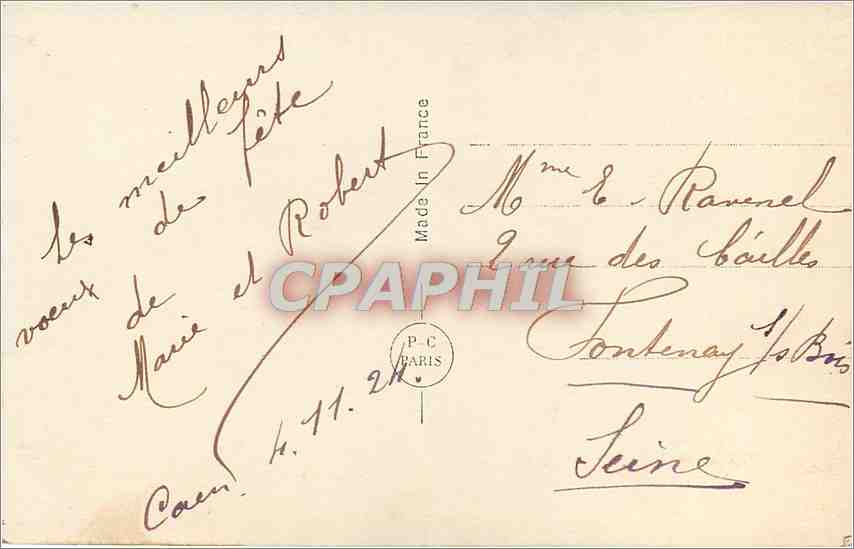 Les meilleurs
voeux de fête
de
Marie et Robert
Caen. 4.11.24.
Made In France
P-C
PARIS
CPAPHIL
Mme E. Ravenel
2 rue des Cailles
Fontenay s/s Bois
Seine